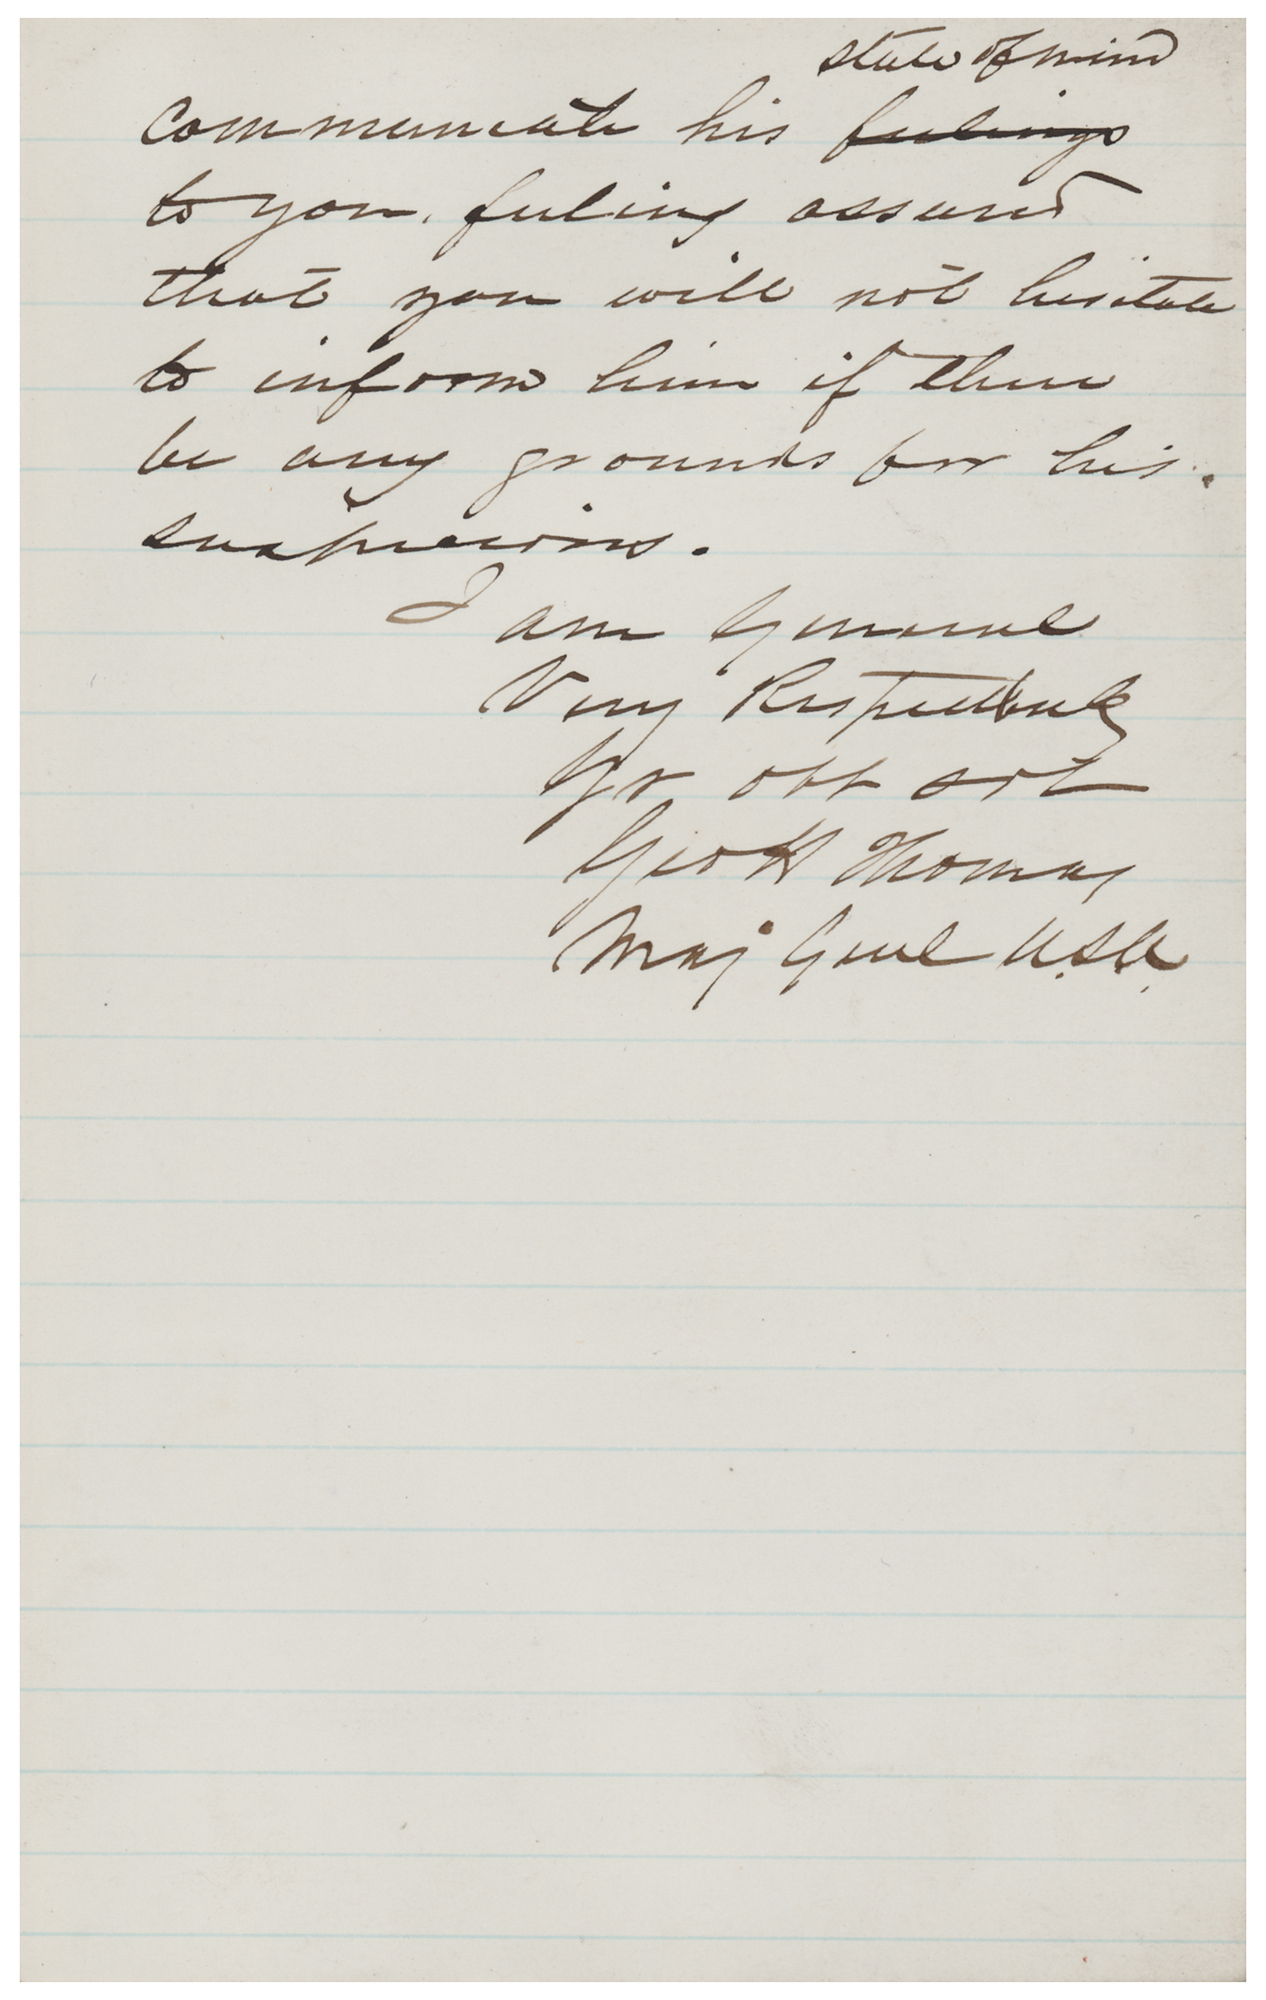 state of mind
Communicate his feelings
to you, feeling assured
that you will not hesitate
to inform him if there
be any grounds for his
suspicions.
I am General
Very Respectfully
Yr obt svt
Geo H Thomas
Maj Genl U.S.A.